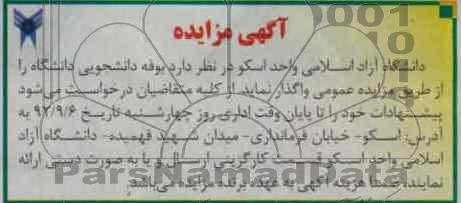 آگهی مزایده
دانشگاه آزاد اسلامی واحد اسکو در نظر دارد بوفه دانشجویی دانشگاه را
از طریق مزایده عمومی واگذار نماید. از کلیه متقاضیان درخواست می‌شود
پیشنهادات خود را تا پایان وقت اداری روز چهارشنبه تاریخ ۹۲/۹/۶ به
آدرس: اسکو- خیابان فرمانداری- میدان شهید فهمیده- دانشگاه آزاد
اسلامی واحد اسکو قسمت کارگزینی ارسال و یا به صورت دستی ارائه
نمایند. ضمناً هزینه آگهی به عهده برنده مزایده می‌باشد.
ParsNamadData